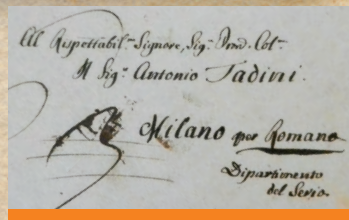 All Rispettabil.^e Signore, Sig.^r Prod. Col.^mo
Il Sig.^r Antonio Tadini.
Milano per Romano
Dipartimento
del Serio.